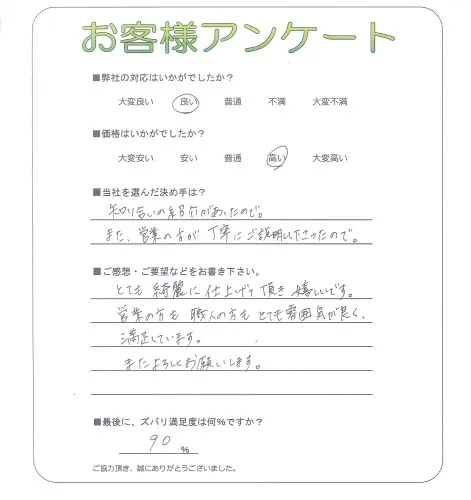 お客様アンケート
■弊社の対応はいかがでしたか？
大変良い 良い 普通 不満 大変不満
■価格はいかがでしたか？
大変安い 安い 普通 高い 大変高い
■当社を選んだ決め手は？
知り合いの紹介があったので。
また、営業の方が丁寧にご説明下さったので。
■ご感想・ご要望などをお書き下さい。
とても綺麗に仕上げて頂き嬉しいです。
営業の方も職人の方もとても雰囲気が良く、
満足しています。
またよろしくお願いします。
■最後に、ズバリ満足度は何％ですか？
90 %
ご協力頂き、誠にありがとうございました。